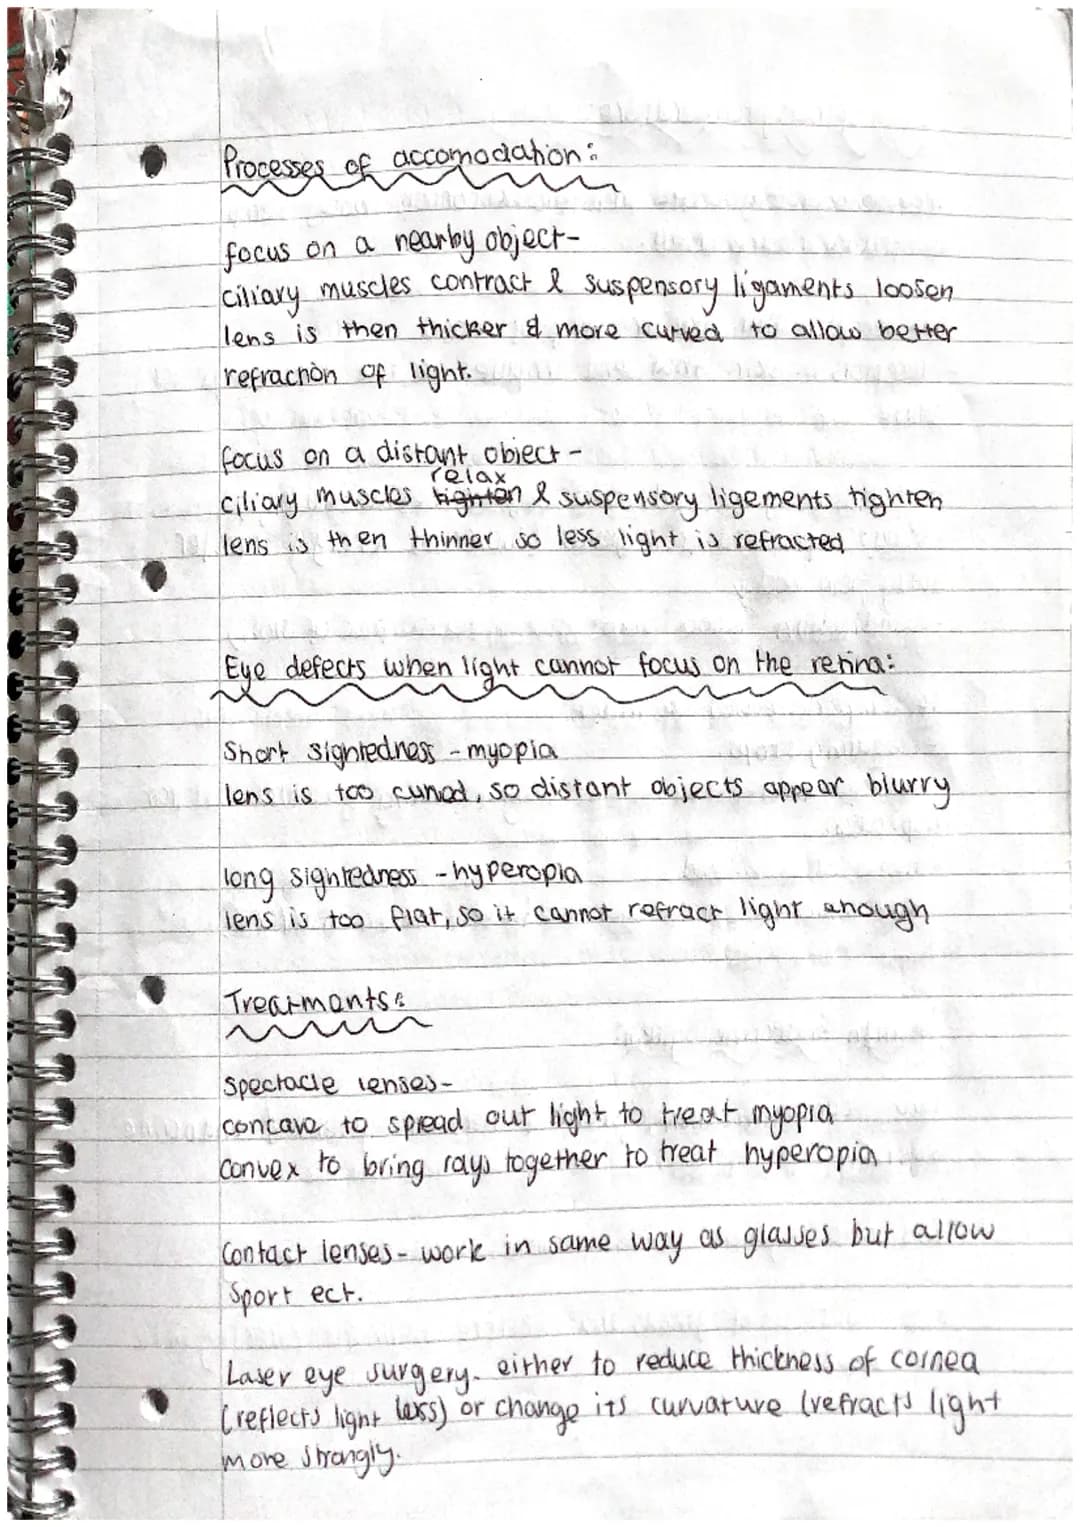 Processes of accomodation:
focus on a nearby object-
ciliary muscles contract & suspensory ligaments loosen
lens is then thicker & more curved to allow better
refraction of light.
focus on a distant object-
relax
ciliary muscles tighten & suspensory ligements tighten
lens is then thinner so less light is refracted
Eye defects when light cannot focus on the retina:
Short sightedness - myopia
lens is too curved, so distant objects appear blurry
long sightedness - hyperopia
lens is too flat, so it cannot refract light enough
Treatments:
Spectacle lenses-
concave to spread out light to treat myopia
convex to bring rays together to treat hyperopia
Contact lenses- work in same way as glasses but allow
Sport ect.
Laser eye surgery- either to reduce thickness of cornea
(reflects light less) or change its curvature (refracts light
more strongly.